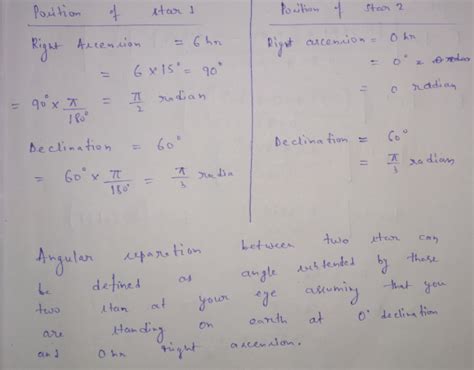 Position of star 1
Right Ascension = 6 hr
= 6 × 15° = 90°
= 90° × π/180° = π/2 radian
Declination = 60°
= 60° × π/180° = π/3 radia
Position of star 2
Right ascension = 0 hr
= 0° =
= 0 radian
Declination = 60°
= π/3 radian
Angular separation between two star can
be defined as angle subtended by those
two stars at your eye assuming that you
are standing on earth at 0° declination
and 0 hr right ascension.